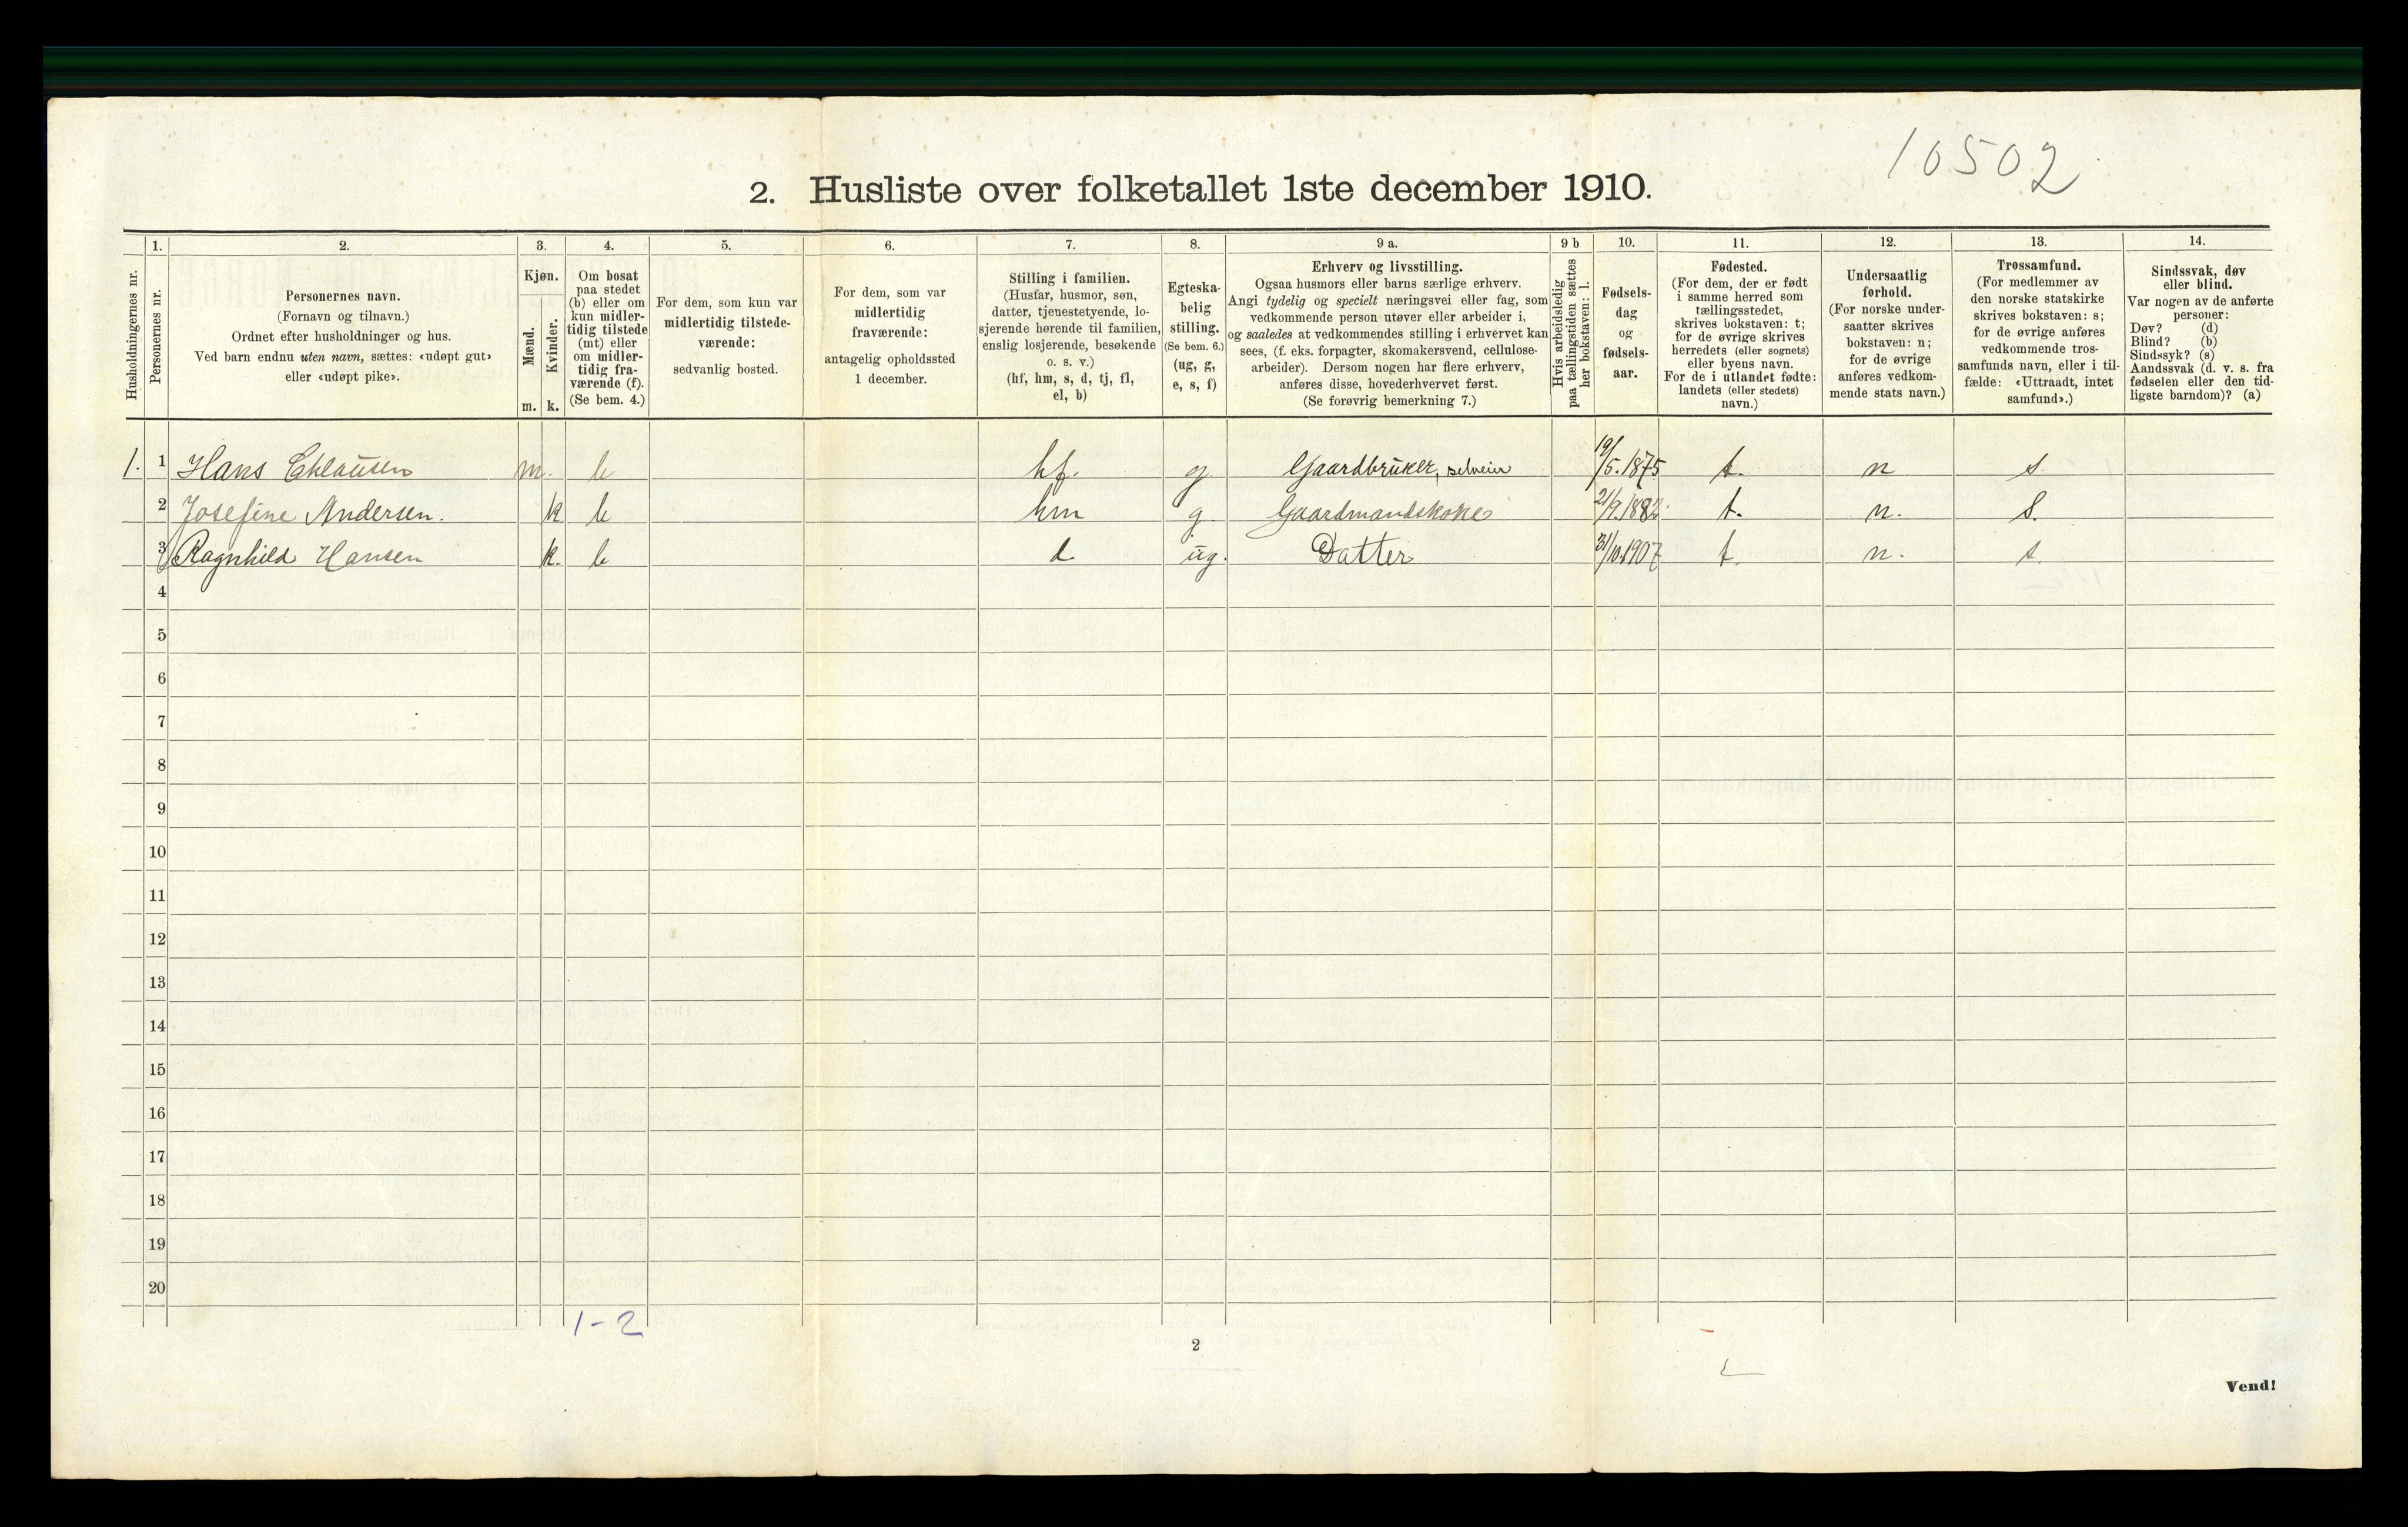 10502
2. Husliste over folketallet 1ste december 1910.
Husholdningernes nr.
1.
Personernes nr.
2.
Personernes navn.
(Fornavn og tilnavn.)
Ordnet efter husholdninger og hus.
Ved barn endnu uten navn, sættes: «udøpt gut»
eller «udøpt pike».
3.
Kjøn.
Mænd.
m.
Kvinder.
k.
4.
Om bosat
paa stedet
(b) eller om
kun midler-
tidig tilstede
(mt) eller
om midler-
tidig fra-
værende (f).
(Se bem. 4.)
5.
For dem, som kun var
midlertidig tilstede-
værende:
sedvanlig bosted.
6.
For dem, som var
midlertidig
fraværende:
antagelig opholdssted
1 december.
7.
Stilling i familien.
(Husfar, husmor, søn,
datter, tjenestetyende, lo-
sjerende hørende til familien,
enslig losjerende, besøkende
o. s. v.)
(hf, hm, s, d, tj, fl,
el, b)
8.
Egteska-
belig
stilling.
(Se bem. 6.)
(ug, g,
e, s, f)
9 a.
Erhverv og livsstilling.
Ogsaa husmors eller barns særlige erhverv.
Angi tydelig og specielt næringsvei eller fag, som
vedkommende person utøver eller arbeider i,
og saaledes at vedkommendes stilling i erhvervet kan
sees, (f. eks. forpagter, skomakersvend, cellulose-
arbeider). Dersom nogen har flere erhverv,
anføres disse, hovederhvervet først.
(Se forøvrig bemerkning 7.)
9 b
Hvis arbeidsledig
paa tællingstiden sættes
her bokstaven: l.
10.
Fødsels-
dag
og
fødsels-
aar.
11.
Fødested.
(For dem, der er født
i samme herred som
tællingsstedet,
skrives bokstaven: t;
for de øvrige skrives
herredets (eller sognets)
eller byens navn.
For de i utlandet fødte:
landets (eller stedets)
navn.)
12.
Undersaatlig
forhold.
(For norske under-
saatter skrives
bokstaven: n;
for de øvrige
anføres vedkom-
mende stats navn.)
13.
Trossamfund.
(For medlemmer av
den norske statskirke
skrives bokstaven: s;
for de øvrige anføres
vedkommende tros-
samfunds navn, eller i til-
fælde: «Uttraadt, intet
samfund».)
14.
Sindssvak, døv
eller blind.
Var nogen av de anførte
personer:
Døv? (d)
Blind? (b)
Sindssyk? (s)
Aandssvak (d. v. s. fra
fødselen eller den tid-
ligste barndom)? (a)
1. 1 Hans Chlausen m. b hf. g. Gaardbruker, selveier 19/5.1875 t. n s.
2 Josefine Andersen. k b hm g. Gaardmandskone 21/9.1882 t. n. s.
3 Ragnhild Hansen k. b d. ug. Datter 31/10.1907 t. n. s.
4
5
6
7
8
9
10
11
12
13
14
15
16
17
18
19
20
1-2
2
Vend!